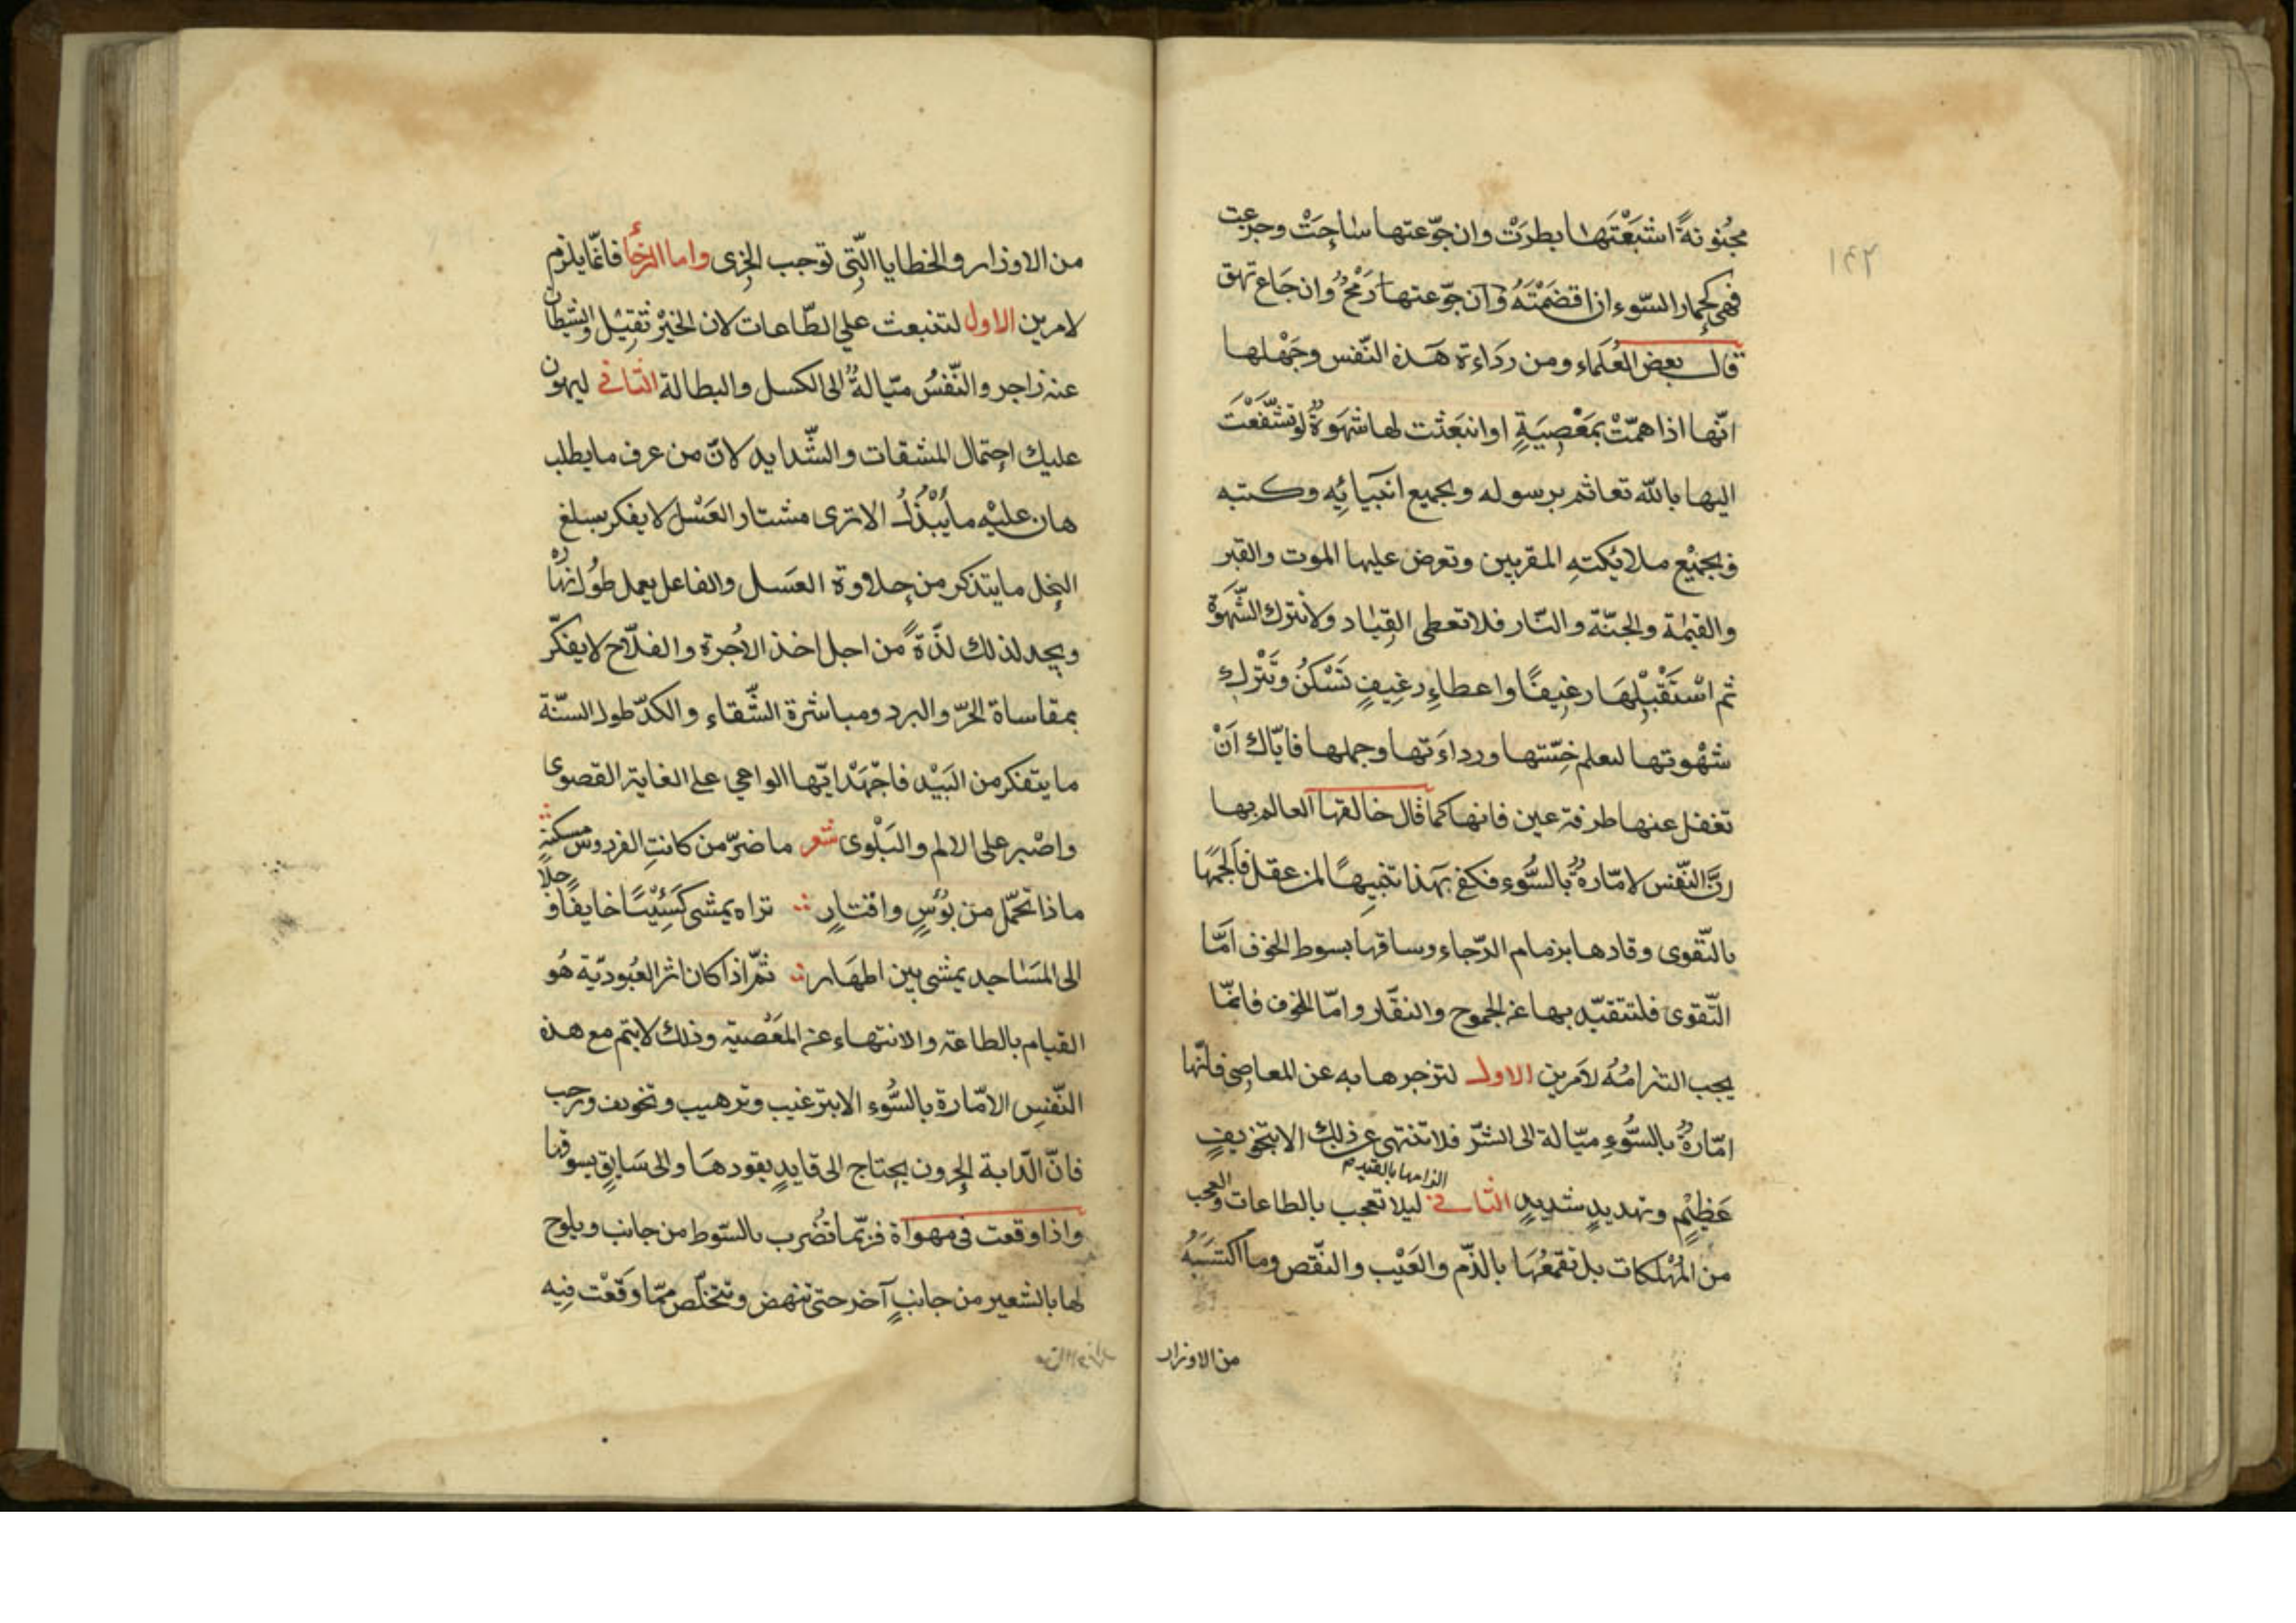 ١٤٢
مجنونةً اشبَعْتَها بطرَتْ وان جوّعتها ساحَتْ وجزعت
فهى كحمار السّوء ان اقضَمْتَهُ وان جوّعتها رَمْحٌ وان جَاع نهق
قال بعض العُلَماء ومن ردَاءة هَذه النّفس وجَهْلها
انّها اذا همّتْ بمَعْصِيَةٍ او انبَعَثت لها شَهْوَةٌ لو تشَفّعْتَ
اليها بالله تعا ثم برسوله وبجميع انبيَائِه وكتبه
وَبجميْع ملائكتهِ المقربين وتعرض عليها الموت والقبر
والقيٰمة والجنّة والنّار فلا تعطى القِيٰاد ولا تترك الشّهْوَة
ثم اسْتَقْبِلْهَا رغيفًا واعطاءِ رغيفٍ تَسْكنُ وتَتْرك
شهْوتها لتعلم خِسّتها ورداءَتها وجهلها فايّاك اَنْ
تغفل عنها طرفة عين فانها كما قال خالقها العالم بها
انَّ النّفس لامّارةٌ بالسُّوء فكفى بهَذا تنبيهًا لمن عقل فَالجمْهَا
بالتّقوى وقادها بزمام الرّجاء وساقها بسوط الخوف اَمّا
التّقوى فلتتقيّد بها عن الجموح والنفّار وامّا الخوف فانّما
يجب التزامُهُ لاَمرين الاول لتزجرها به عن المعاصِى فانّها
امّارةٌ بالسُّوءِ ميّالة الى الشرّ فلا تنتهى عن ذلك الا بتخويفٍ
عَظيْمٍ وتهديدٍ شديدٍ الثانى ليلا تعجب بالطاعات والعجب
من المُهْلكات بل تقمعُهَا بالذّم والعَيْب والنّقص وما اكتسَبَهُ
من الاوزار
من الاوزار والخطايا الّتِى توجب الخِزى واما الرّجَاء فانّما يلزم
لامرين الاول لتنبعث على الطّاعات لان الخيْر ثقِيْل والشيطان
عنه زاجر والنّفسُ ميّالةٌ الى الكسل والبطالة الثانى ليهون
عليك احتمال المشقات والشّدايد لانّ من عرف ما يطلب
هان عليْه ما يُبْذُلُ الا ترى مشتار العَسْل لا يفكر بسلغ
النحل ما يتذكر من حلاوة العسَل والفاعل يعمل طوُل نهَاره
ويجد لذلك لذّةً من اجل اخذ الاُجرة والفلّاح لا يفكّر
بمقاساة الحَرّ والبرد ومباشرة الشّقاء والكدّ طول السنّة
ما يتفكر من البَيْدر فاجْهَدْ ايّها الواحى على الغاية القصوى
واصْبر على الالم والبَلْوى شعر ما ضرّ من كانتِ الفردوس مسكنه
ماذا تحمّل من بُؤْسٍ واقتارٍ تراه يمشى كَئِيْبًا خايفًا وجلًا
الى المسَاجد يمشى بين اطمَار ثمّ اذا كان اثر العُبوديّة هُو
القيام بالطاعة والانتهاء عن المَعْصية وذلك لا يتم مع هذه
النّفسِ الامّارة بالسُّوء الا بترغيب وترهيب وتخويف ورجب
فانّ الدّابة الحرون يحتاج الى قايدٍ يقودهَا والى سَايقٍ يسوقها
واذا وقعت فى مهواة فربّما تضُرب بالسّوط من جانب ويلوح
لها بالشعير من جانبٍ آخر حتى تنهض وتتخلّص ممّا وَقعْت فِيه